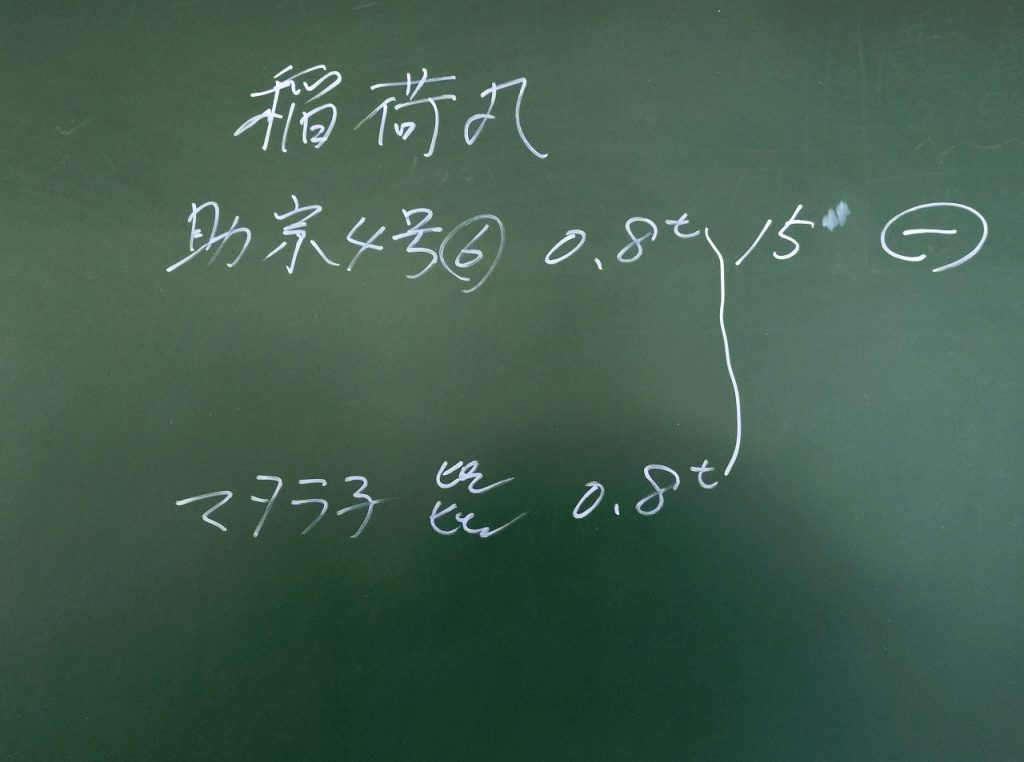 稲荷丸
助宗4号⑥ 0.8t 15 ㊀
マダラ子 0.8t